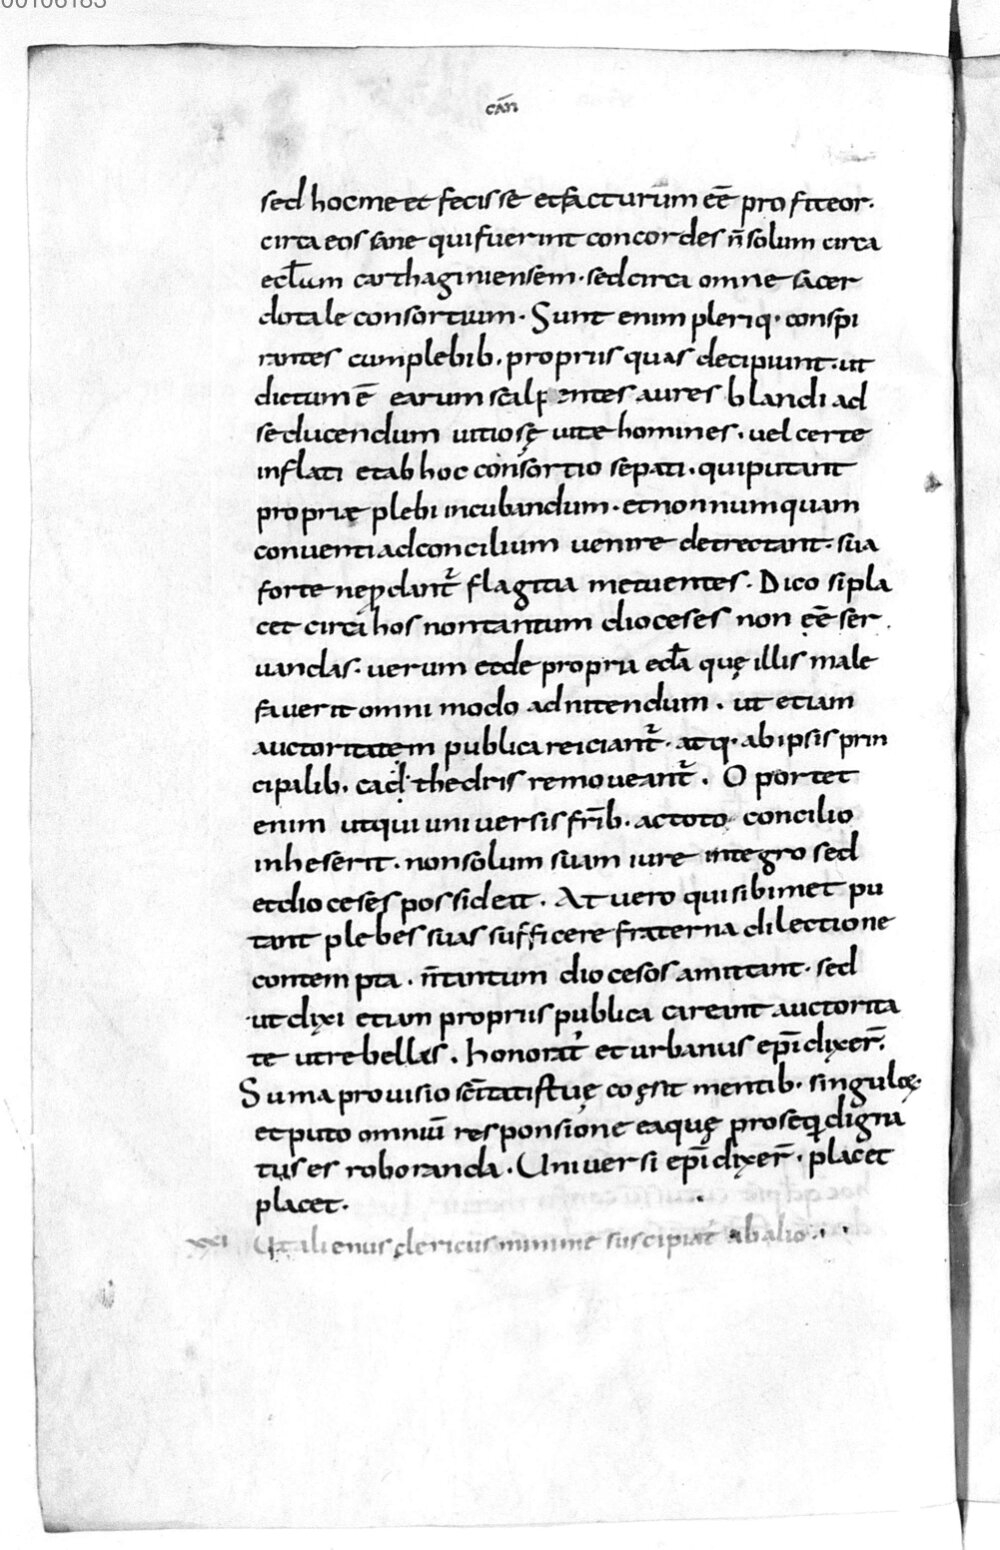 00106183
cāñ
sed hoc me et fecisse et facturum eē profiteor.
circa eos sane qui fuerint concordes n̄ solum circa
eclam carthaginiensem · sed circa omne sacer
dotale consortium · Sunt enim pleriq· conspi
rantes cum plebib· propriis quas decipiunt · ut
dictum ē earum scalpentes aures blandi ad
seducendum uitiosę uite homines · uel certe
inflati et ab hoc consortio sepati · qui putant
proprię plebi incubandum · et non numquam
conuenti ad concilium uenire detrectant · sua
forte ne ꝓdant̄ flagitia metuentes · Dico si pla
cet circa hos non tantum dioceses non eē ser
uandas: uerum et de propria ecla quę illis male
fauerit omni modo adnitendum · ut etiam
auctoritatem publica reiciant̄ · atq· ab ipsis prin
cipalib· cathedris remoueant̄ · Oportet
enim ut qui uniuersis frīb· ac toto concilio
inheserit · non solum suam iure integro sed
et dioceses possideat · At uero qui sibimet pu
tant plebes suas sufficere fraterna dilectione
contempta · n̄ tantum diocesos amittant · sed
ut dixi etiam propriis publica careant auctorita
te ut rebelles · Honorat᾽ et urbanus epī dixer̄·
Suma prouisio sc̄itatis tuę coęsit mentib· singuloꝝ·
et puto omniū responsione ea quę proseq̄ digna
tus es roboranda · Uniuersi epī dixer̄ · placet
placet ·
xxi Ut alienus clericus minime suscipiat̄ ab alio · ·